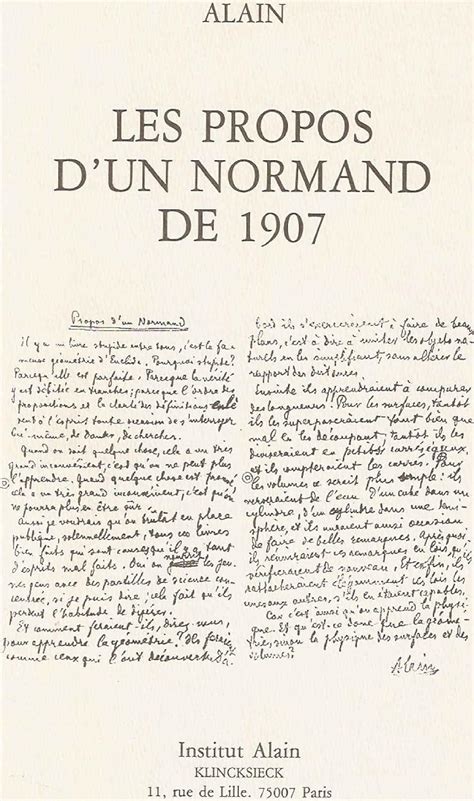 ALAIN
LES PROPOS
D'UN NORMAND
DE 1907
Propos d'un Normand
il y a un livre stupide entre tous, c'est la fa-
meuse géométrie d'Euclide. Pourquoi stupide?
Parce qu'elle est parfaite. Parce que la vérité
y est débitée en tranches; parce que l'ordre des
propositions et la clarté des définitions enlè
vent à l'esprit toute occasion de s'interroger
lui-même, de douter, de chercher.
Quand on sait quelque chose, cela a un très
grand inconvénient, c'est qu'on ne peut plus
l'apprendre. Quand quelque chose est prouvé
cela a un très grand inconvénient, c'est qu'on
ne pourra plus en être sûr.
Aussi je voudrais qu'on brûlat en place
publique, solennellement, tous ces livres
bien faits qui sont cause qu'il y a tant
d'esprits mal faits. Oui on nourrit les jeu
nes gens avec des pastilles de science con
centrée, si je puis dire; cela fait qu'ils
perdent l'habitude de digérer.
Et comment feraient-ils, direz-vous,
pour apprendre la géométrie? Ils feraient
comme ceux qui l'ont découverte. D'a
bord ils s'exerceraient à faire de beaux
plans, c'est à dire à imiter les objets na-
turels en les simplifiant, sans altérer le
rapport des distances.
Ensuite ils apprendraient à comparer
des longueurs. Pour les surfaces, tantôt
ils les superposeraient tant bien que
mal en les découpant; tantôt ils les
diviseraient en petits carrés égaux,
et ils compteraient les carrés. Pour
les volumes ce serait plus simple: ils
verseraient de l'eau. D'un cube dans un
cylindre, d'un cylindre dans une demi-
sphère, et ils auraient ainsi occasion
de faire de belles remarques. Après quoi
ils réuniraient ces remarques en lois, qu'ils
vérifieraient de nouveau. Et enfin, ils
rattacheraient élégamment ces lois les
unes aux autres, s'ils en étaient capables.
Car c'est ainsi qu'on apprend la physi
que. Et qu'est-ce donc que la géomé-
trie, sinon la physique des surfaces et des
volumes?
Alain
Institut Alain
KLINCKSIECK
11, rue de Lille. 75007 Paris